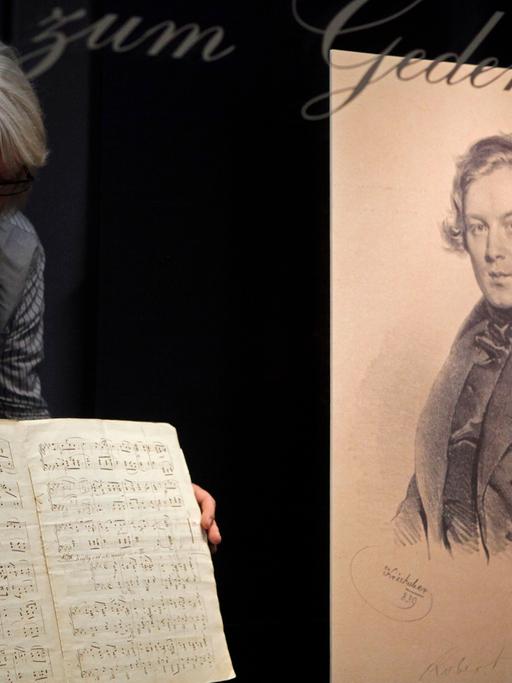 zum Geden
Kriehuber
839
Robert